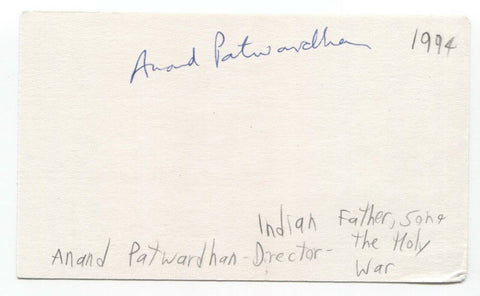 Anand Patwardhan 1994
Indian Father, Song
Anand Patwardhan - Director - the Holy
War